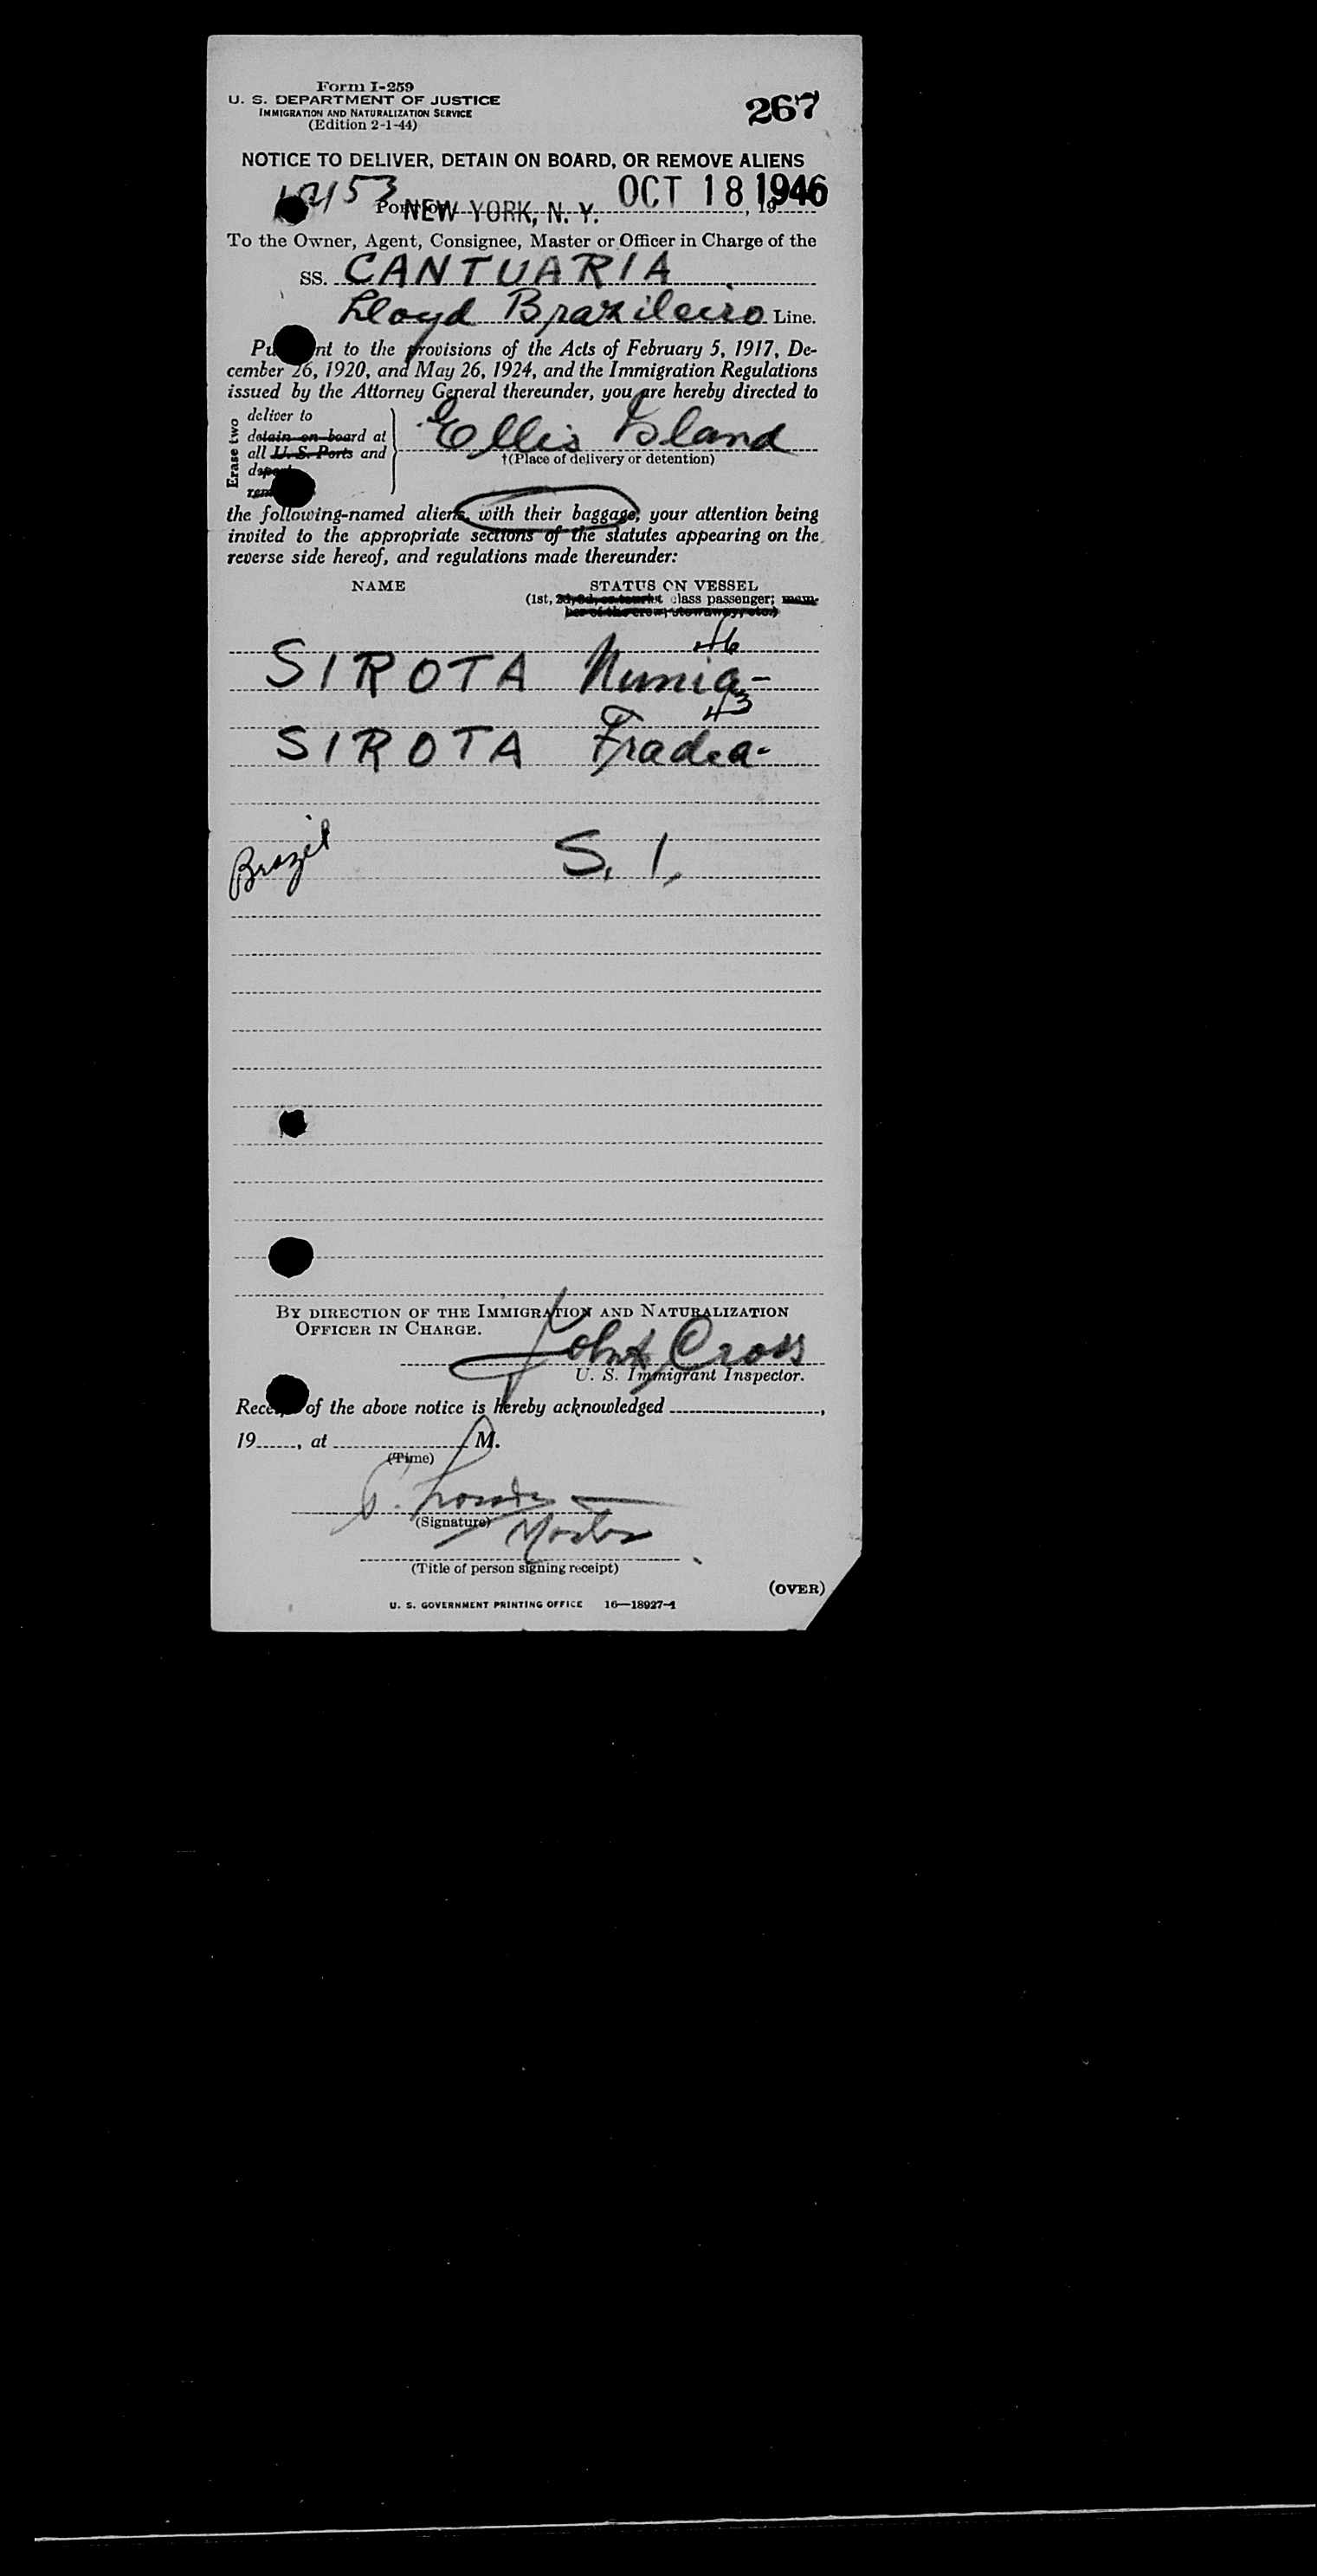 Form I-259
267
U. S. DEPARTMENT OF JUSTICE
IMMIGRATION AND NATURALIZATION SERVICE
(Edition 2-1-44)
NOTICE TO DELIVER, DETAIN ON BOARD, OR REMOVE ALIENS
NEW YORK, N. Y. OCT 18 1946, 19
To the Owner, Agent, Consignee, Master or Officer in Charge of the
SS. CANTUARIA
Lloyd Brazileiro Line.
nt to the provisions of the Acts of February 5, 1917, De-
cember 26, 1920, and May 26, 1924, and the Immigration Regulations
issued by the Attorney General thereunder, you are hereby directed to
Erase two
deliver to
detain on board at
all U. S. Ports and
Ellis Island
†(Place of delivery or detention)
the following-named aliens, with their baggage, your attention being
invited to the appropriate sections of the statutes appearing on the
reverse side hereof, and regulations made thereunder:
NAME STATUS ON VESSEL
(1st, 2d, 3d, or tourist class passenger; mem-
ber of the crew, stowaway, etc.)
46
SIROTA Numia-
43
SIROTA Fradea-
Brazil S. I,
BY DIRECTION OF THE IMMIGRATION AND NATURALIZATION
OFFICER IN CHARGE.
John Cross
U. S. Immigrant Inspector.
of the above notice is hereby acknowledged ,
19 , at M.
(Time)
(Signature)
(Title of person signing receipt)
(OVER)
U. S. GOVERNMENT PRINTING OFFICE 16—18927-1